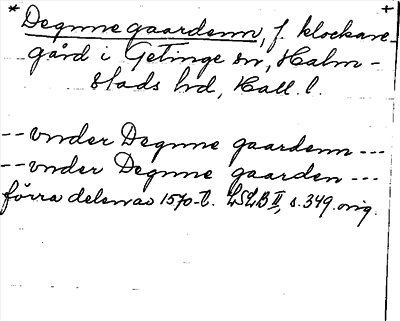 * Degnne gaardenn, f. klockare- +
gård i Getinge sn, Halm-
stads hd, Hall. l.
-- vnder Degnne gaardenn ---
-- vnder Degnne gaarden ---
förra delen av 1570-t. LSLB II, s. 349. orig.